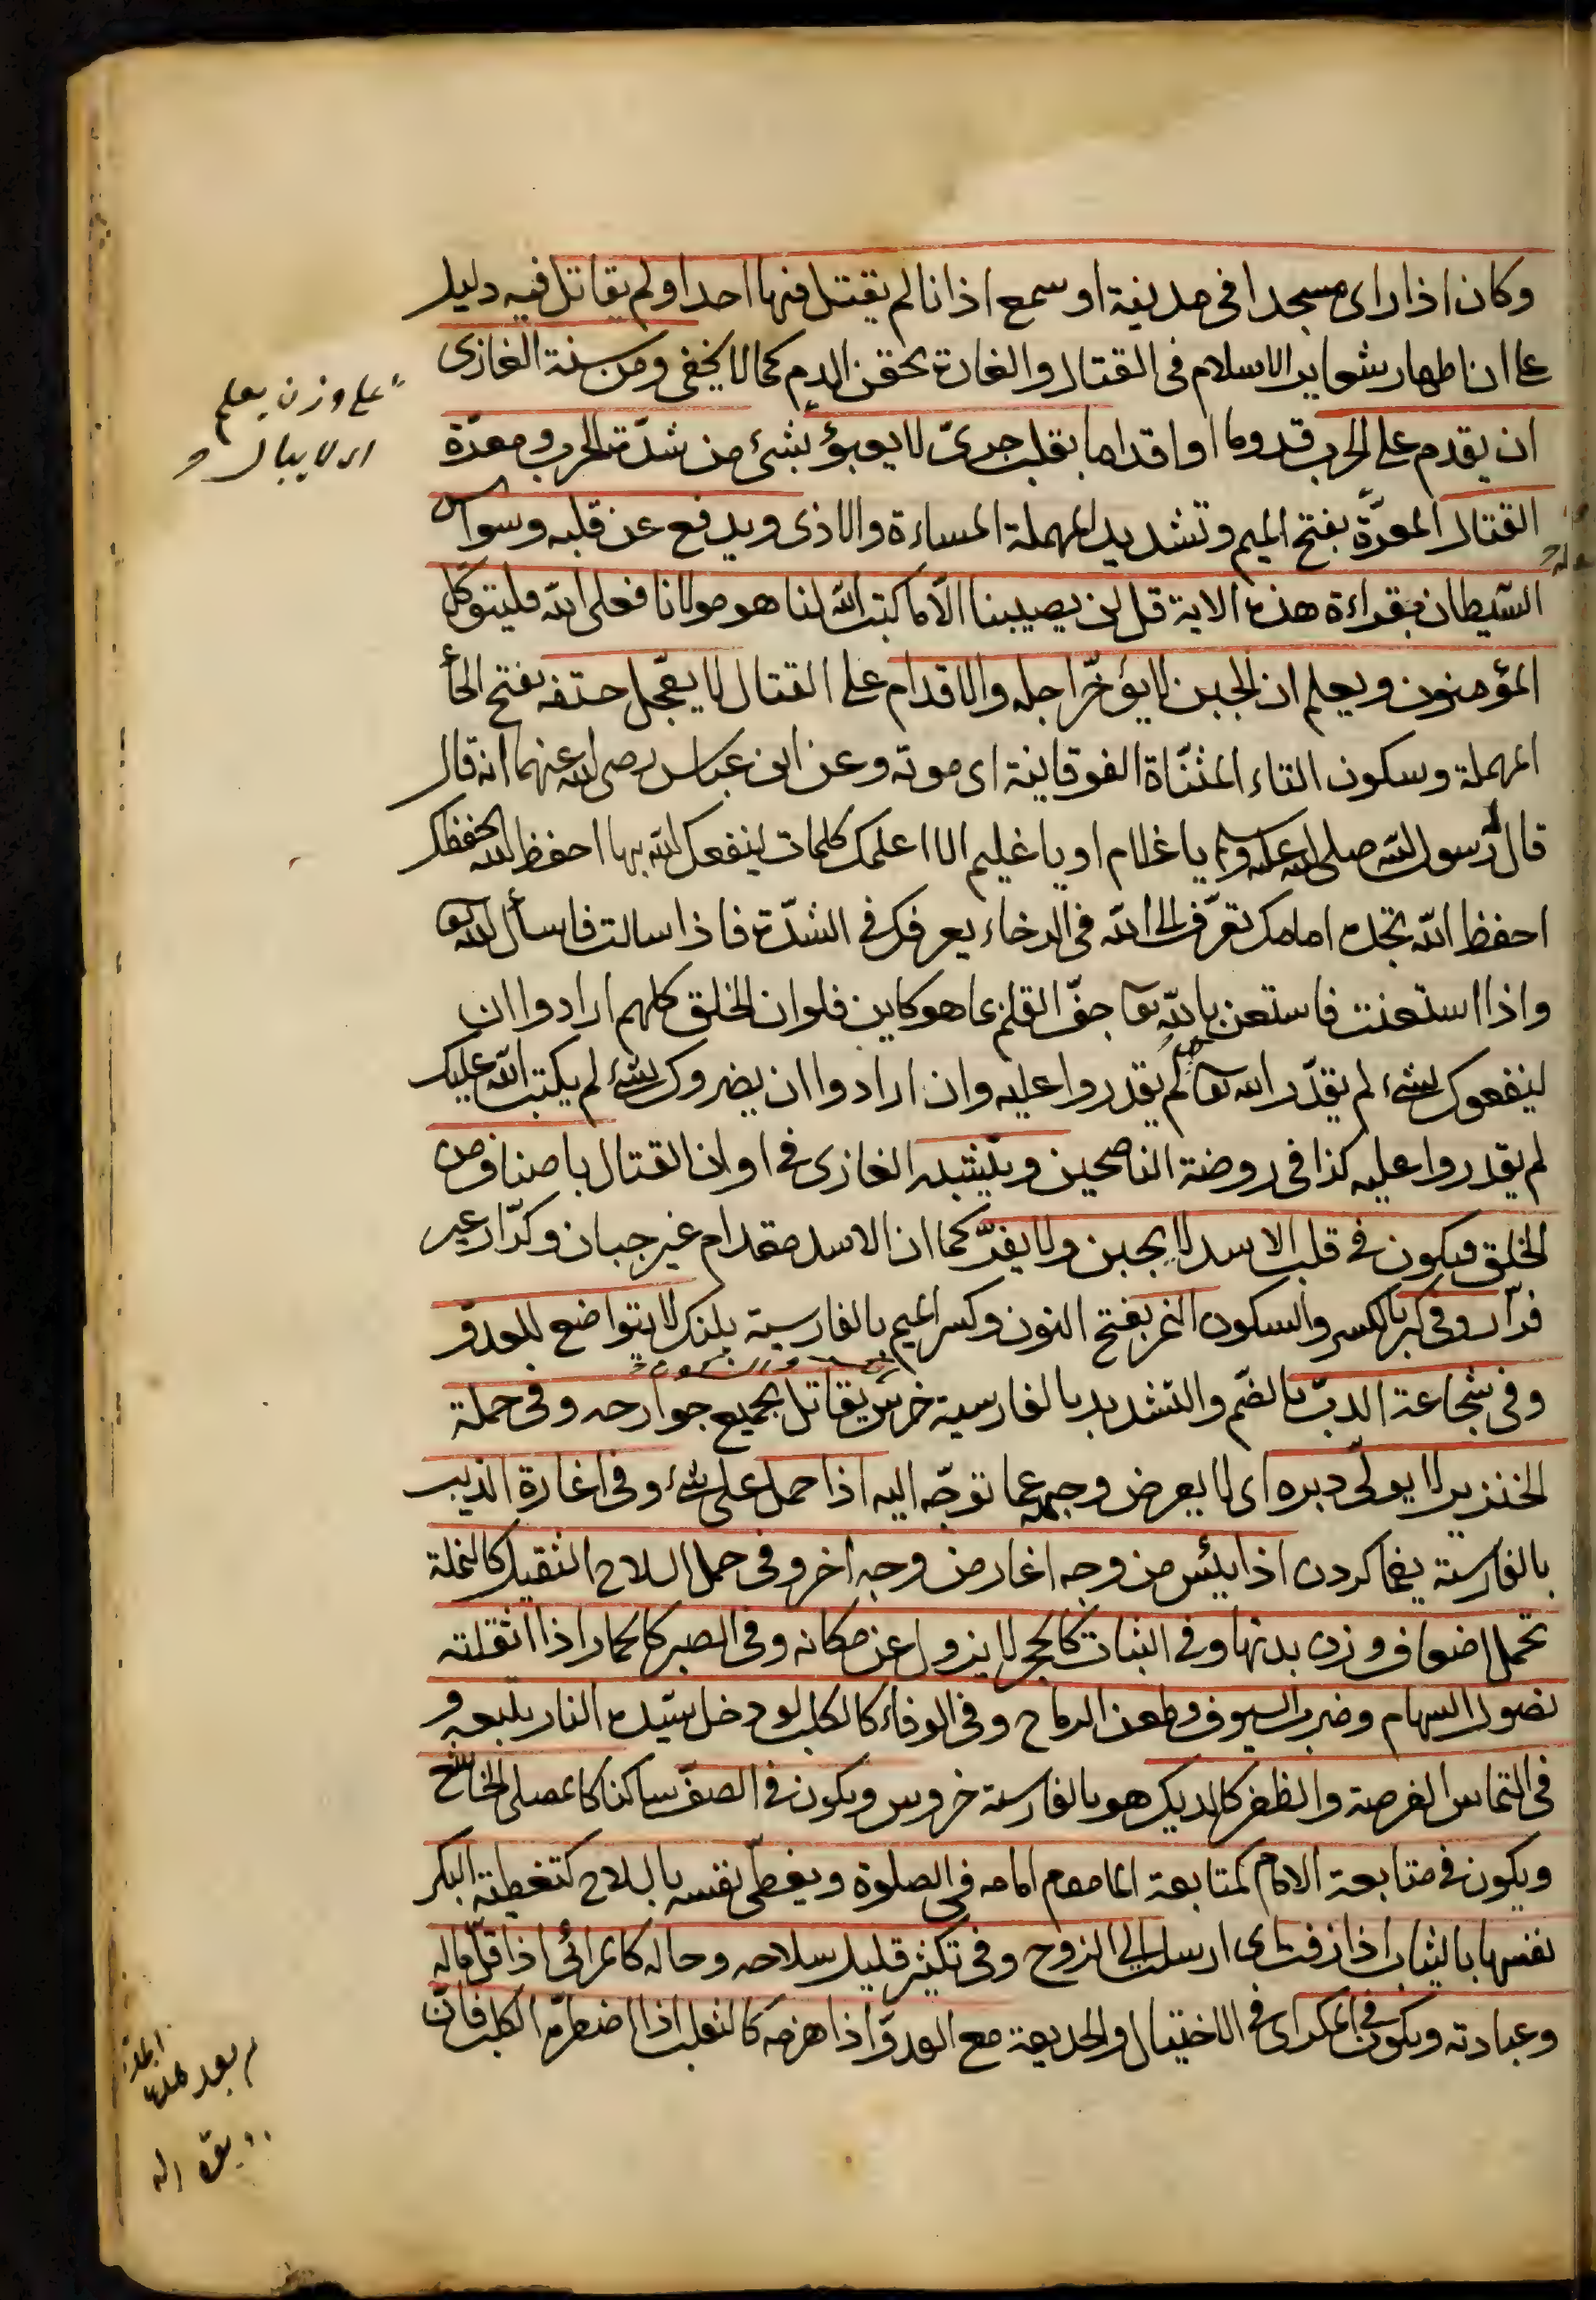 وكان اذا راى مسجدا فى مدينة او سمع اذانا لم يقتل فيها احدا ولم يقاتل فيه دليل
على ان اظهار شعاير الاسلام فى القتال والغارة يحقن الدم كما لا يخفى ومن سنة الغازى
ان يقدم على الحرب قدوما او اقداما بقلب جرىّ لا يعبؤ بشئ من شدّة الحرب ومعرّة
القتال المعرّة بفتح الميم وتشديد المهملة المساءة والاذى ويدفع عن قلبه وسواس
الشيطان بقراءة هذه الاية قل لن يصيبنا الّا ما كتب الله لنا هو مولانا فعلى الله فليتوكّل
المؤمنون ويعلم ان الجبن لا يؤخّر اجله والاقدام على القتال لا يعجّل حتفه بفتح الحأ
المهملة وسكون التاء المثنّاة الفوقانية اى موته وعن ابن عباس رضى الله عنهما انه قال
قال رسول الله صلى الله عليه وسلم يا غلام او يا غليم الا اعلمك كلمات لينفعك الله بها احفظ الله يحفظك
احفظ الله تجده امامك تعرّف الى الله فى الرخاء يعرفك فى الشدّة فاذا سالت فاسأل الله تعا
واذا استعنت فاستعن بالله تعا جفّ القلم بما هو كاين فلو ان الخلق كلهم ارادوا ان
لينفعوك بشئ لم يقدّر الله تعا لم يقدروا عليه وان ارادوا ان يضروك بشئ لم يكتب الله عليك
لم يقدروا عليه كذا فى روضة الناصحين ويتشبه الغازى فى اوان القتال باصناف من
الخلق فيكون فى قلب الاسد لا يجبن ولا يفرّ كما ان الاسد مقدام غير جبان وكرّار غير
فرّار وفى كبر بالكسر والسكون النمر بفتح النون وكسر الميم بالفارسية پلنك لا يتواضع للعدوّ
وفى شجاعة الدبّ بالضّم والتشديد بالفارسية خرس يقاتل بجميع جوارحه وفى حملة
الخنزير لا يولّى دبره اى لا يعرض وجهه عما توجّه اليه اذا حمل على شئ وفى اغارة الذيب
بالفارسية يغما كردن اذا يئس من وجه اغار من وجه اخر وفى حمل السلاح الثقيل كالنملة
تحمل اضعاف وزن بدنها وفى الثبات كالحجر لا يزول عن مكانه وفى الصبر كالحمار اذا اثقلته
نصول السهام وضرب السيوف وطعن الرماح وفى الوفاء كالكلب لو دخل سيّده النار يتبعه و
فى التماس الفرصة والظفر كالديك هو بالفارسية خروس ويكون فى الصفّ ساكنا كالمصلى الخاشع
ويكون فى متابعة الامام كمتابعة المأموم امامه فى الصلوة ويغطّى نفسه بالسلاح كتغطية البكر
نفسها بالثياب اذا زفت اى ارسلت الى الزوج وفى تكثير قليل سلاحه وحاله كالمرائى اذا قلّ ماله
وعبادته ويكون فى المكر اى فى الاختيال والخديعة مع العدوّ اذا هزمه كالثعلب اذا اضطرّه الكلب فانّ
على وزن يعلم
اى لا يبالى